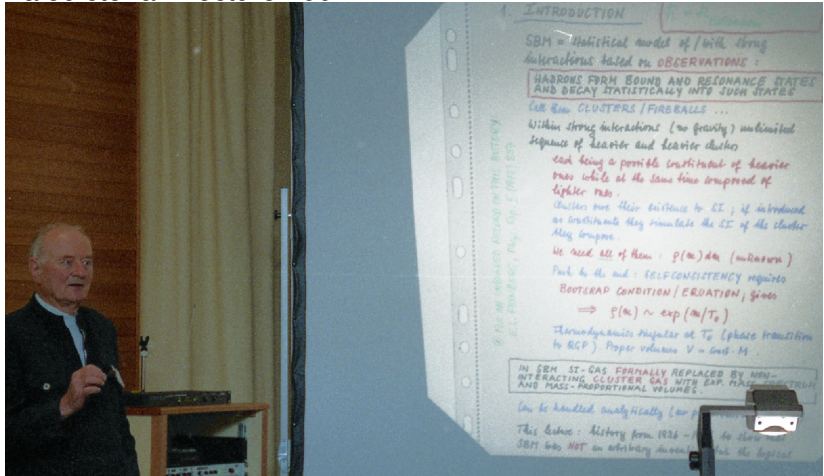 1. INTRODUCTION
SBM = Statistical model of / with strong
interactions based on OBSERVATIONS :
HADRONS FORM BOUND AND RESONANCE STATES
AND DECAY STATISTICALLY INTO SUCH STATES
Call them CLUSTERS / FIREBALLS ...
Within strong interactions (no gravity) unlimited
sequence of heavier and heavier clusters
each being a possible constituent of heavier
ones while at the same time composed of
lighter ones.
Clusters owe their existence to SI ; if introduced
as constituents they simulate the SI of the cluster
they compose.
We need all of them : ρ(m)dm (unknown)
Push to the end : SELFCONSISTENCY requires
BOOTSRAP CONDITION / EQUATION, gives
⟹ ρ(m) ~ exp(m/T₀)
Thermodynamics singular at T₀ (phase transition
to QGP) Proper volumes V = const · M
IN SBM SI-GAS FORMALLY REPLACED BY NON-
INTERACTING CLUSTER GAS WITH EXP. MASS SPECTRUM
AND MASS-PROPORTIONAL VOLUMES.
Can be handled analytically
This lecture : history from 1936 - to show that
SBM was NOT an arbitrary but the logical